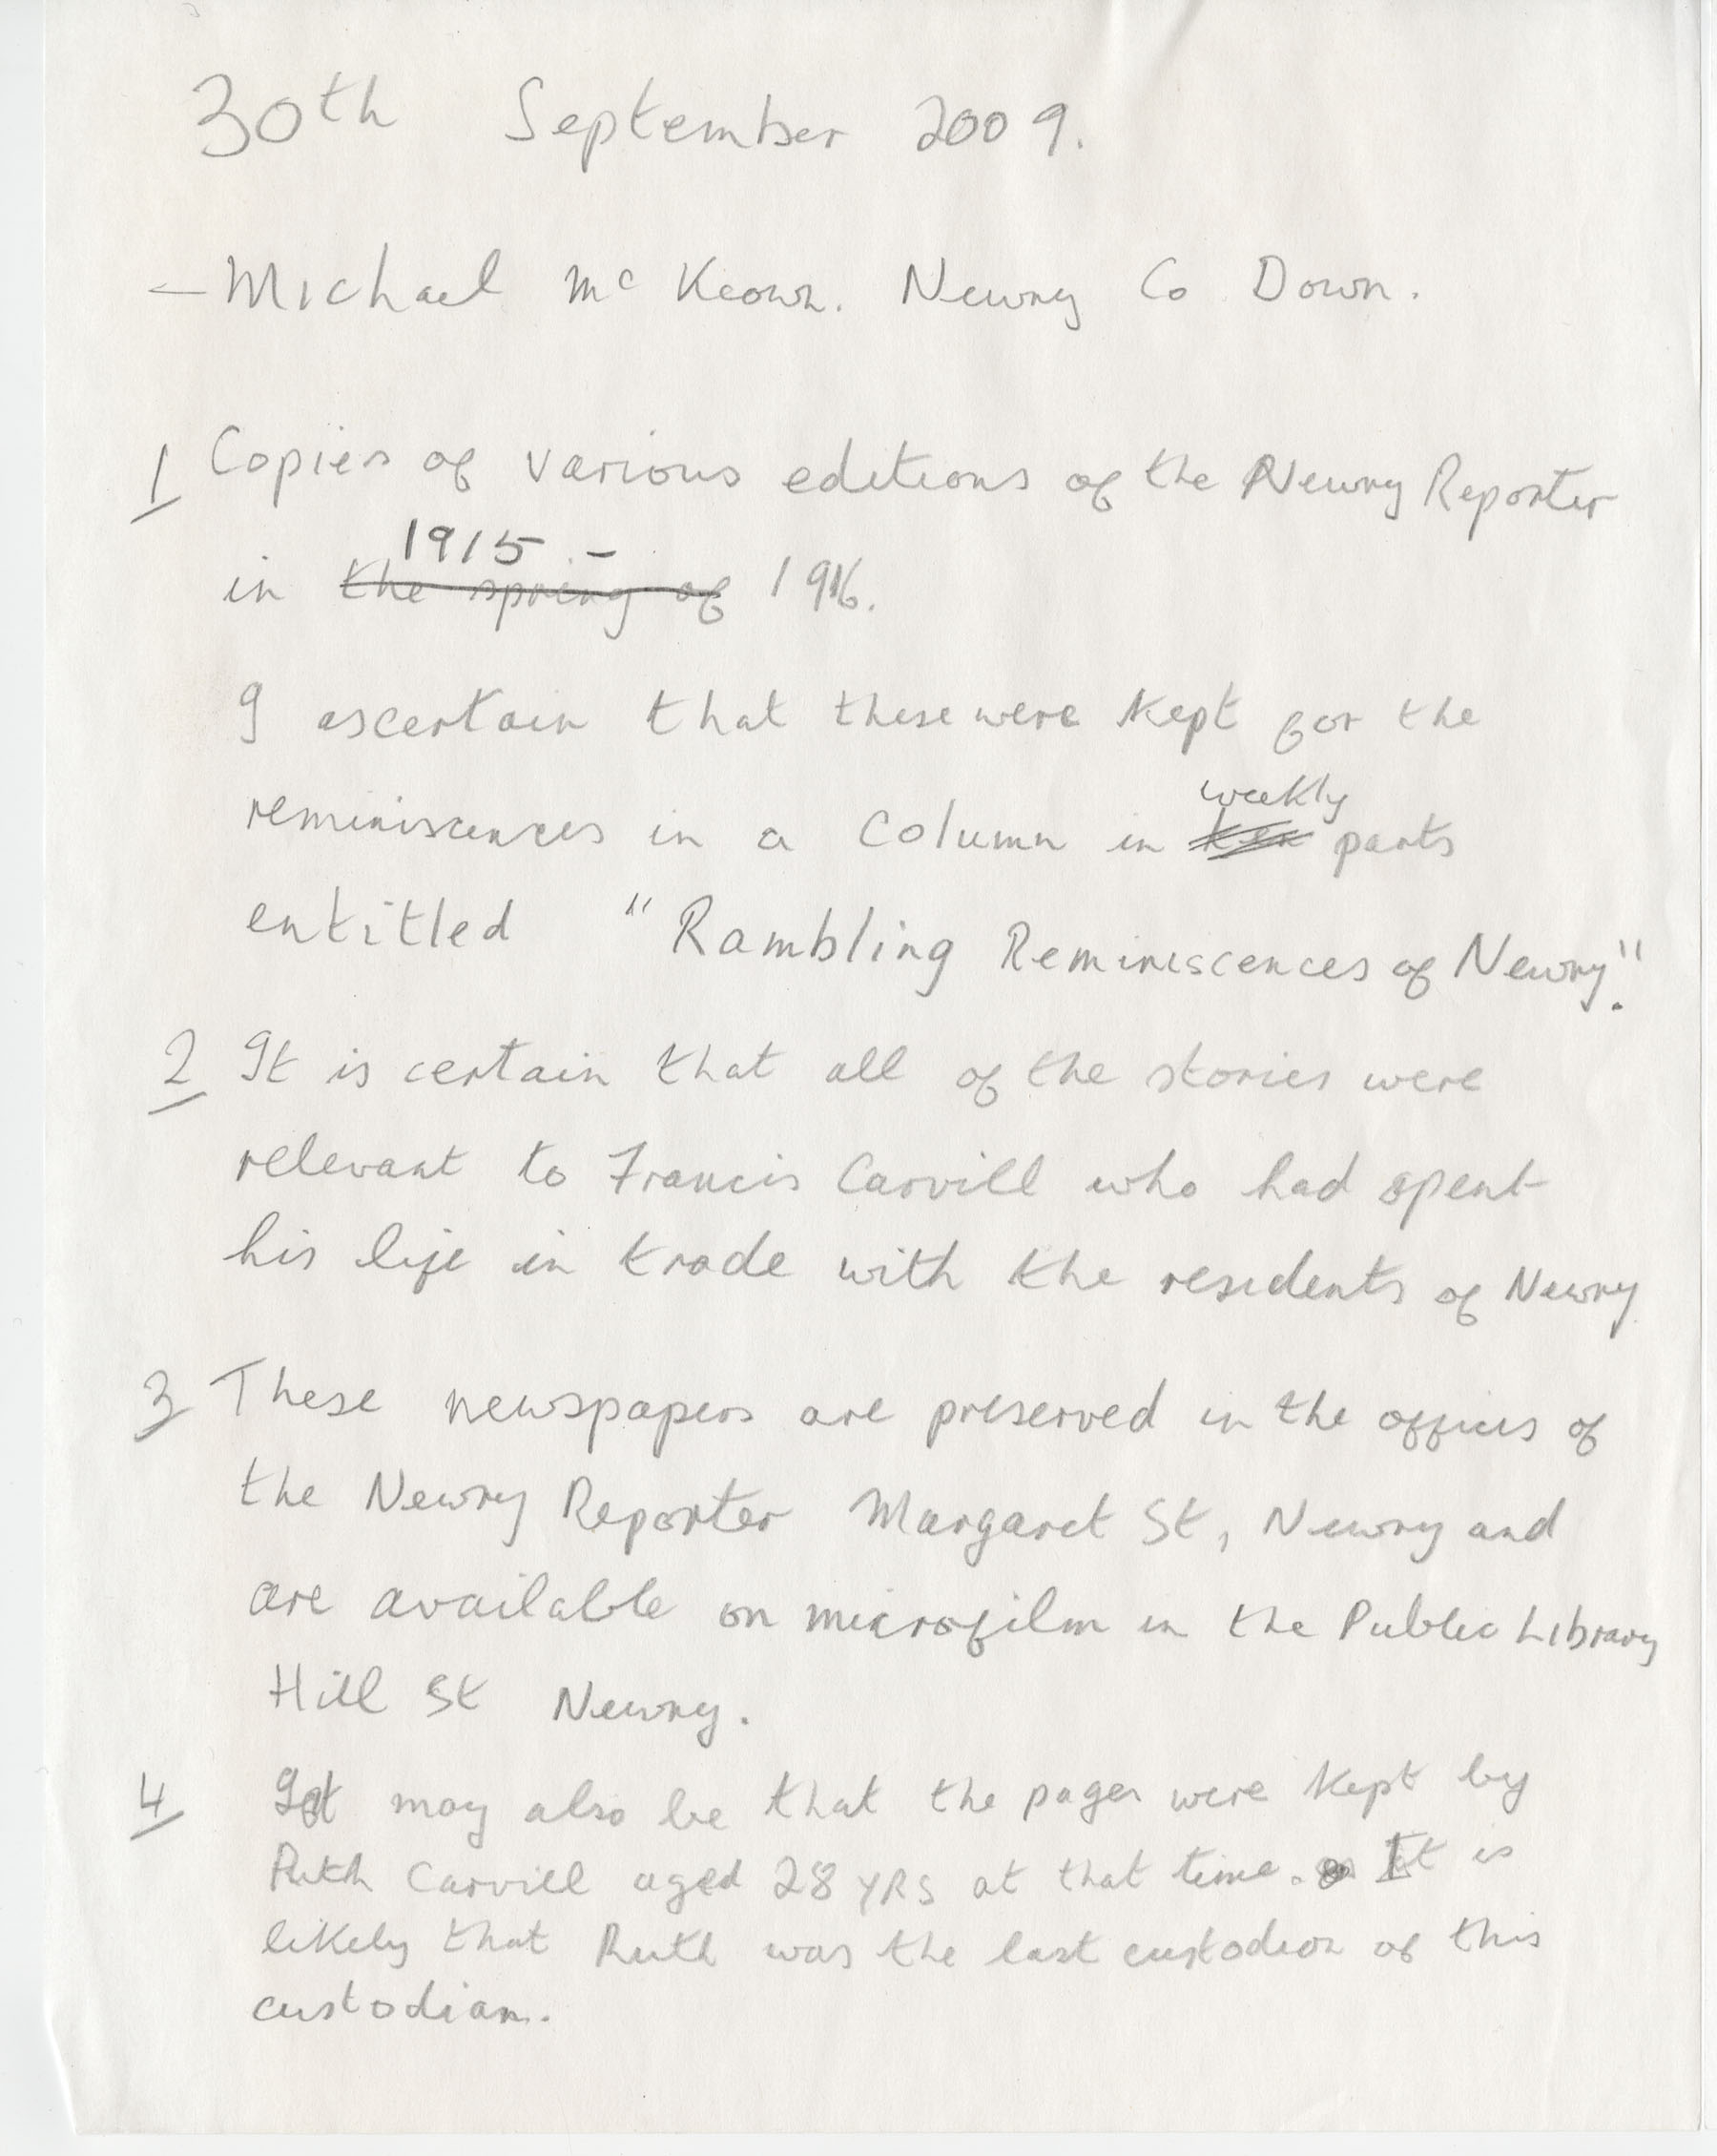 30th September 2009.
– Michael Mc Keown. Newry Co Down.
1 Copies of various editions of the Newry Reporter
1915 –
in the spring of 1916.
I ascertain that these were kept for the
weekly
reminiscences in a column in ten parts
entitled "Rambling Reminiscences of Newry".
2 It is certain that all of the stories were
relevant to Francis Carvill who had spent
his life in trade with the residents of Newry
3 These newspapers are preserved in the offices of
the Newry Reporter Margaret St, Newry and
are available on microfilm in the Public Library
Hill St Newry.
4 It may also be that the pages were kept by
Ruth Carvill aged 28 YRS at that time. It is
likely that Ruth was the last custodian of this
custodian.